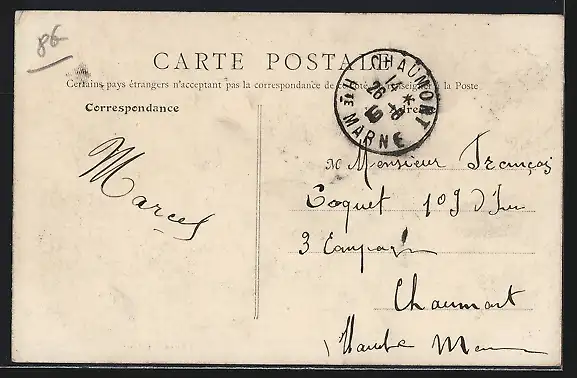 86
CARTE POSTALE
Certains pays étrangers n'acceptent pas la correspondance de ce côté à la Poste
Correspondance
CHAUMONT
Hte MARNE
M Monsieur François
Coquet 109 D'Inf
Marcel
3 Compagnie
Chaumont
Haute Marne